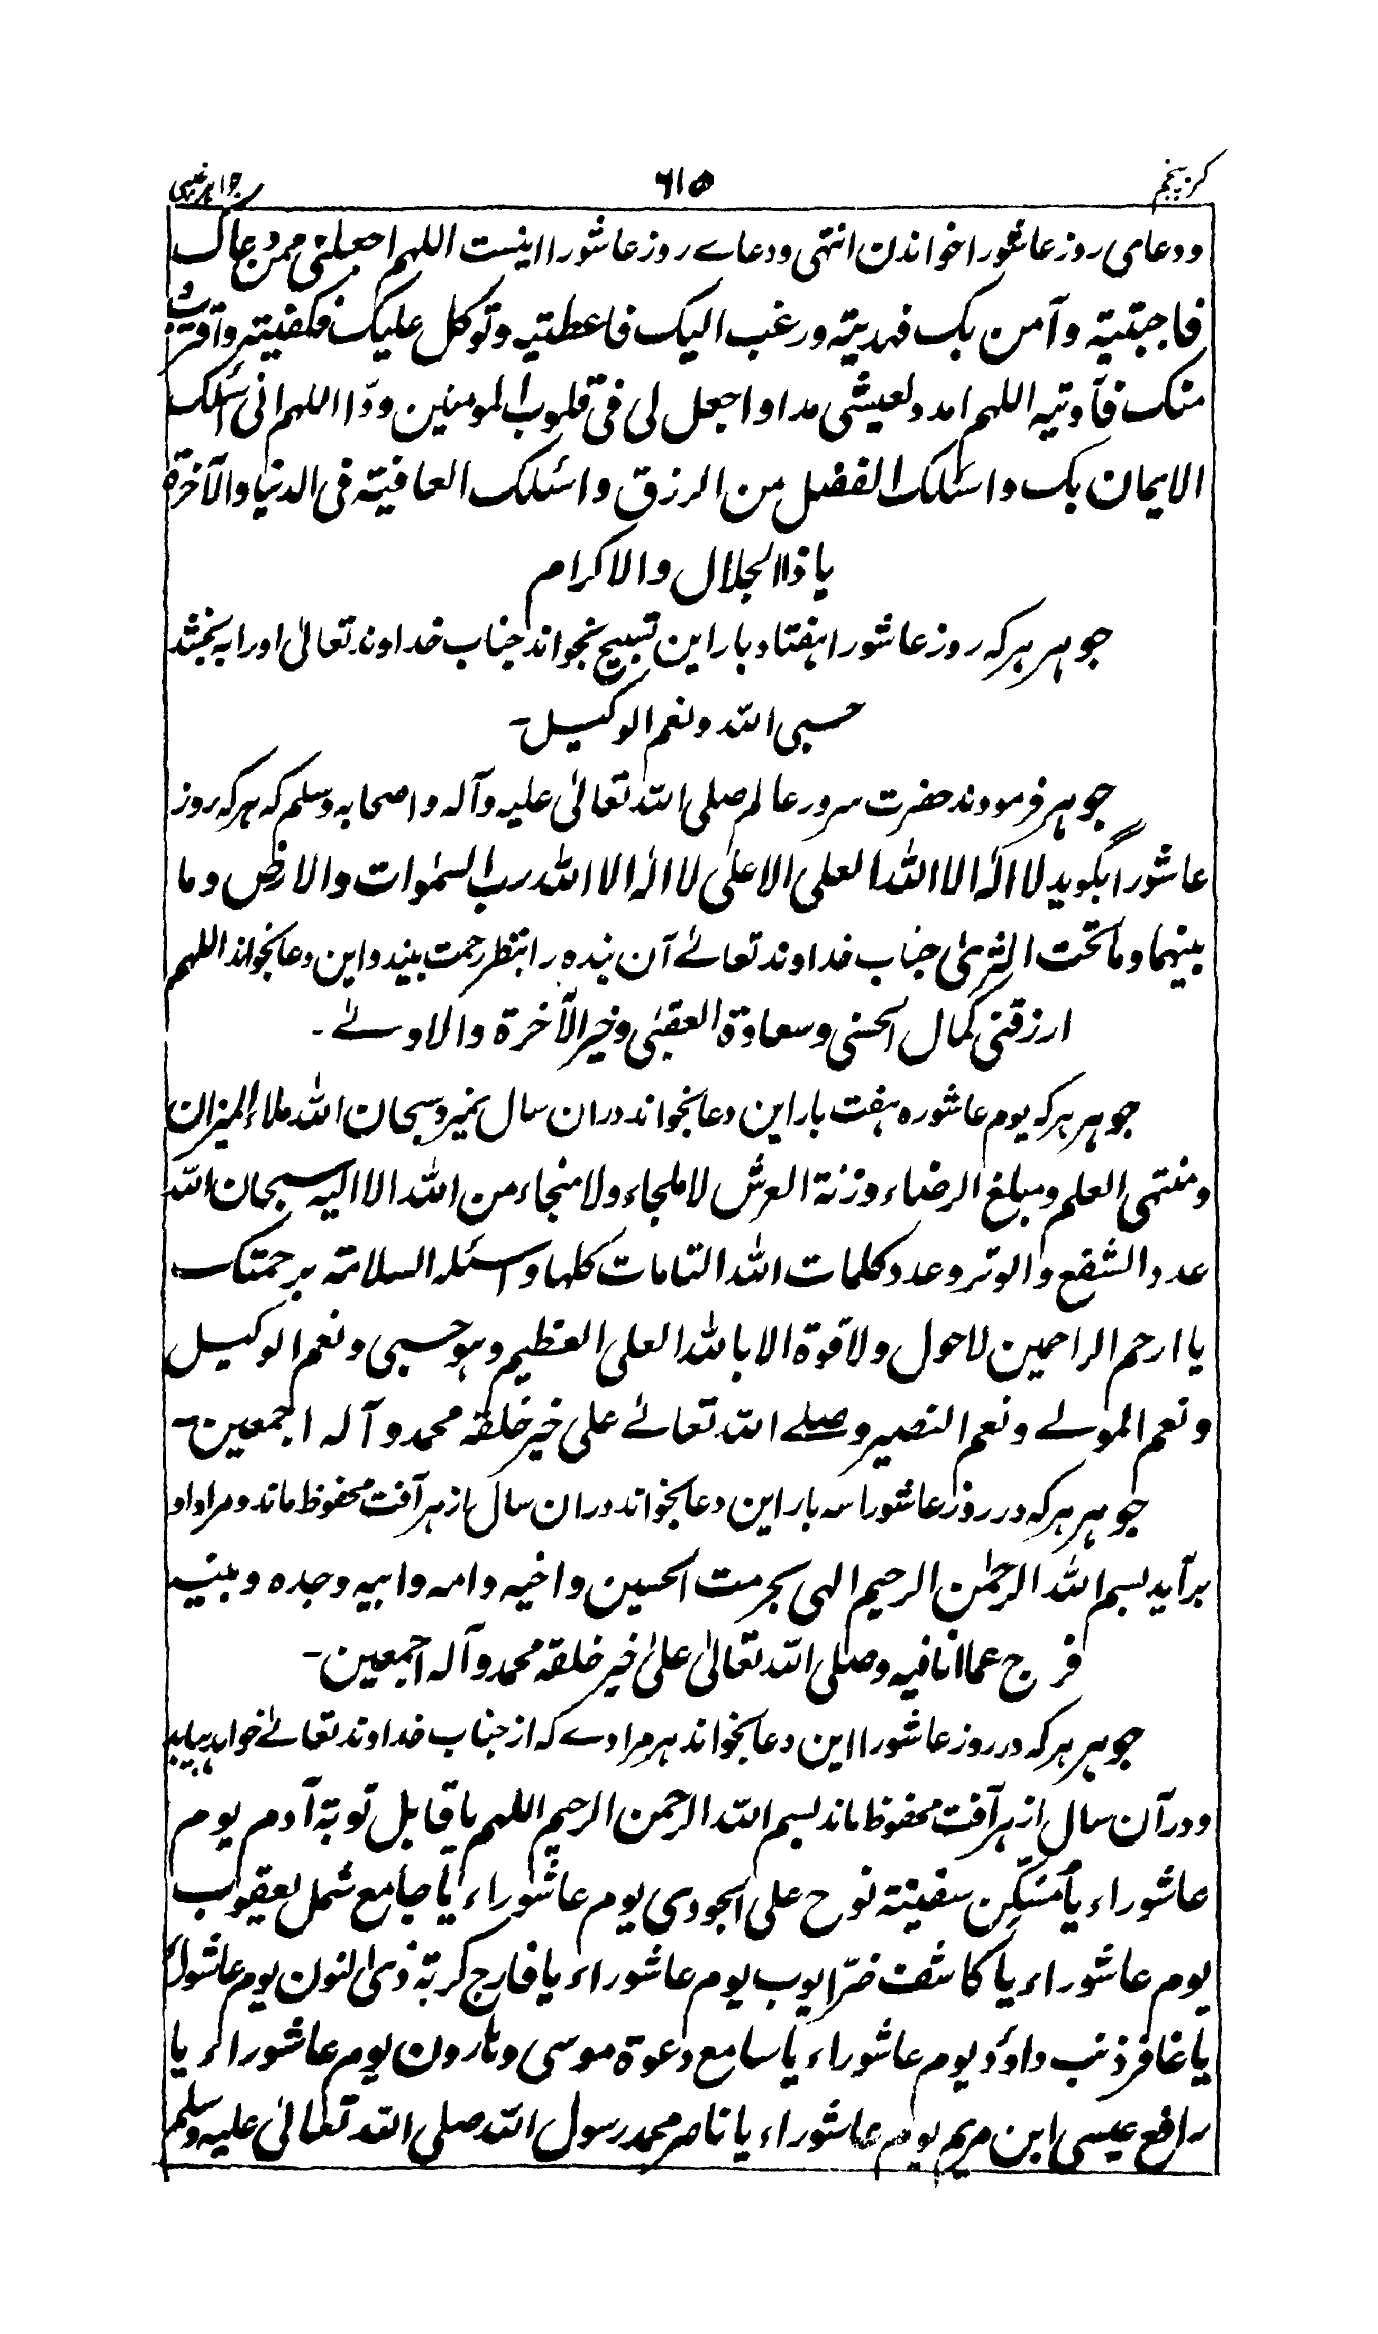 کنز پنجم ۶۱۵ جواہر غیبی
ودعای روز عاشورا خواندن انتہی ودعاے روز عاشورا اینست اللہم اجعلنی ممن دعاک
فاجبتیہ وآمن بک فہدیتہ ورغب الیک فاعطتیہ وتوکل علیک فکفیتہ واقترب
منک فآوتیہ اللہم امدد لعیشی مدا واجعل لی فی قلوب المومنین ودّا اللہم انی اسئلک
الایمان بک واسئلک الفضل من الرزق واسئلک العافیتہ فی الدنیا والآخرۃ
یا ذا الجلال والاکرام
جوہر ہرکہ روز عاشورا ہفتاد بار این تسبیح بخواند جناب خداوند تعالیٰ اورا بہ بخشد
حسبی اللہ ونعم الوکیل۔
جوہر فرمودند حضرت سرور عالم صلی اللہ تعالیٰ علیہ وآلہ واصحابہ وسلم کہ ہرکہ روز
عاشورا بگوید لا الہ الا اللہ العلی الاعلی لا الہ الا اللہ رب السمٰوات والارض وما
بینہما وما تحت الثریٰ جناب خداوند تعالےٰ آن بندہ را بنظر رحمت بیند واین دعا بخواند اللہم
ارزقنی کمال الحسنی وسعادۃ العقبیٰ وخیر الآخرۃ والاولےٰ۔
جوہر ہرکہ یوم عاشورہ ہفت بار این دعا بخواند دران سال نمیرد سبحان اللہ ملاء المیزان
ومنتہی العلم ومبلغ الرضاء وزنۃ العرش لا ملجاء ولا منجاء من اللہ الا الیہ سبحان اللہ
عدد الشفع والوتر وعدد کلمات اللہ التامات کلہا واسئلہ السلامتہ برحمتک
یا ارحم الراحمین لا حول ولا قوۃ الا باللہ العلی العظیم وہو حسبی ونعم الوکیل
ونعم المولےٰ ونعم النصیر وصلے اللہ تعالےٰ علی خیر خلقہ محمد وآلہ اجمعین۔
جوہر ہرکہ در روز عاشورا سہ بار این دعا بخواند دران سال از ہر آفت محفوظ ماند ومراد او
برآید بسم اللہ الرحمٰن الرحیم الہی بحرمت الحسین واخیہ وامہ وابیہ وجدہ وبنیہ
فرج عما انا فیہ وصلی اللہ تعالیٰ علیٰ خیر خلقہ محمد وآلہ اجمعین۔
جوہر ہرکہ در روز عاشورا این دعا بخواند ہر مرادے کہ از جناب خداوند تعالےٰ خواہد بیابد
ودر آن سال از ہر آفت محفوظ ماند بسم اللہ الرحمن الرحیم اللہم یا قابل توبۃ آدم یوم
عاشوراء یا مُسَکِّن سفینۃ نوح علی الجودی یوم عاشوراء یا جامع شمل یعقوب
یوم عاشوراء یا کاشف ضرّ ایوب یوم عاشوراء یا فارج کربۃ ذی النون یوم عاشوراء
یا غافر ذنب داوٗد یوم عاشوراء یا سامع دعوۃ موسی وہارون یوم عاشوراء یا
رافع عیسی ابن مریم یوم عاشوراء یا ناصر محمد رسول اللہ صلی اللہ تعالیٰ علیہ وسلم